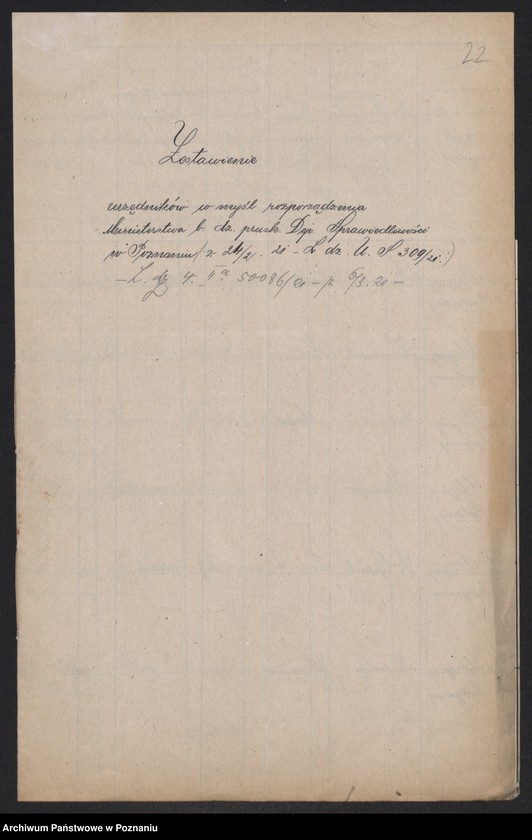 22
Zestawienie
urzędników w myśl rozporządzenia
Ministerstwa b. dz. prusk. Dep. Sprawiedliwości
w Poznaniu z 24/2. 21 - L. dz. U. P 309/21.)
- L. dz. 4. II a 50086/21 - p. 6/3. 21 -
Archiwum Państwowe w Poznaniu